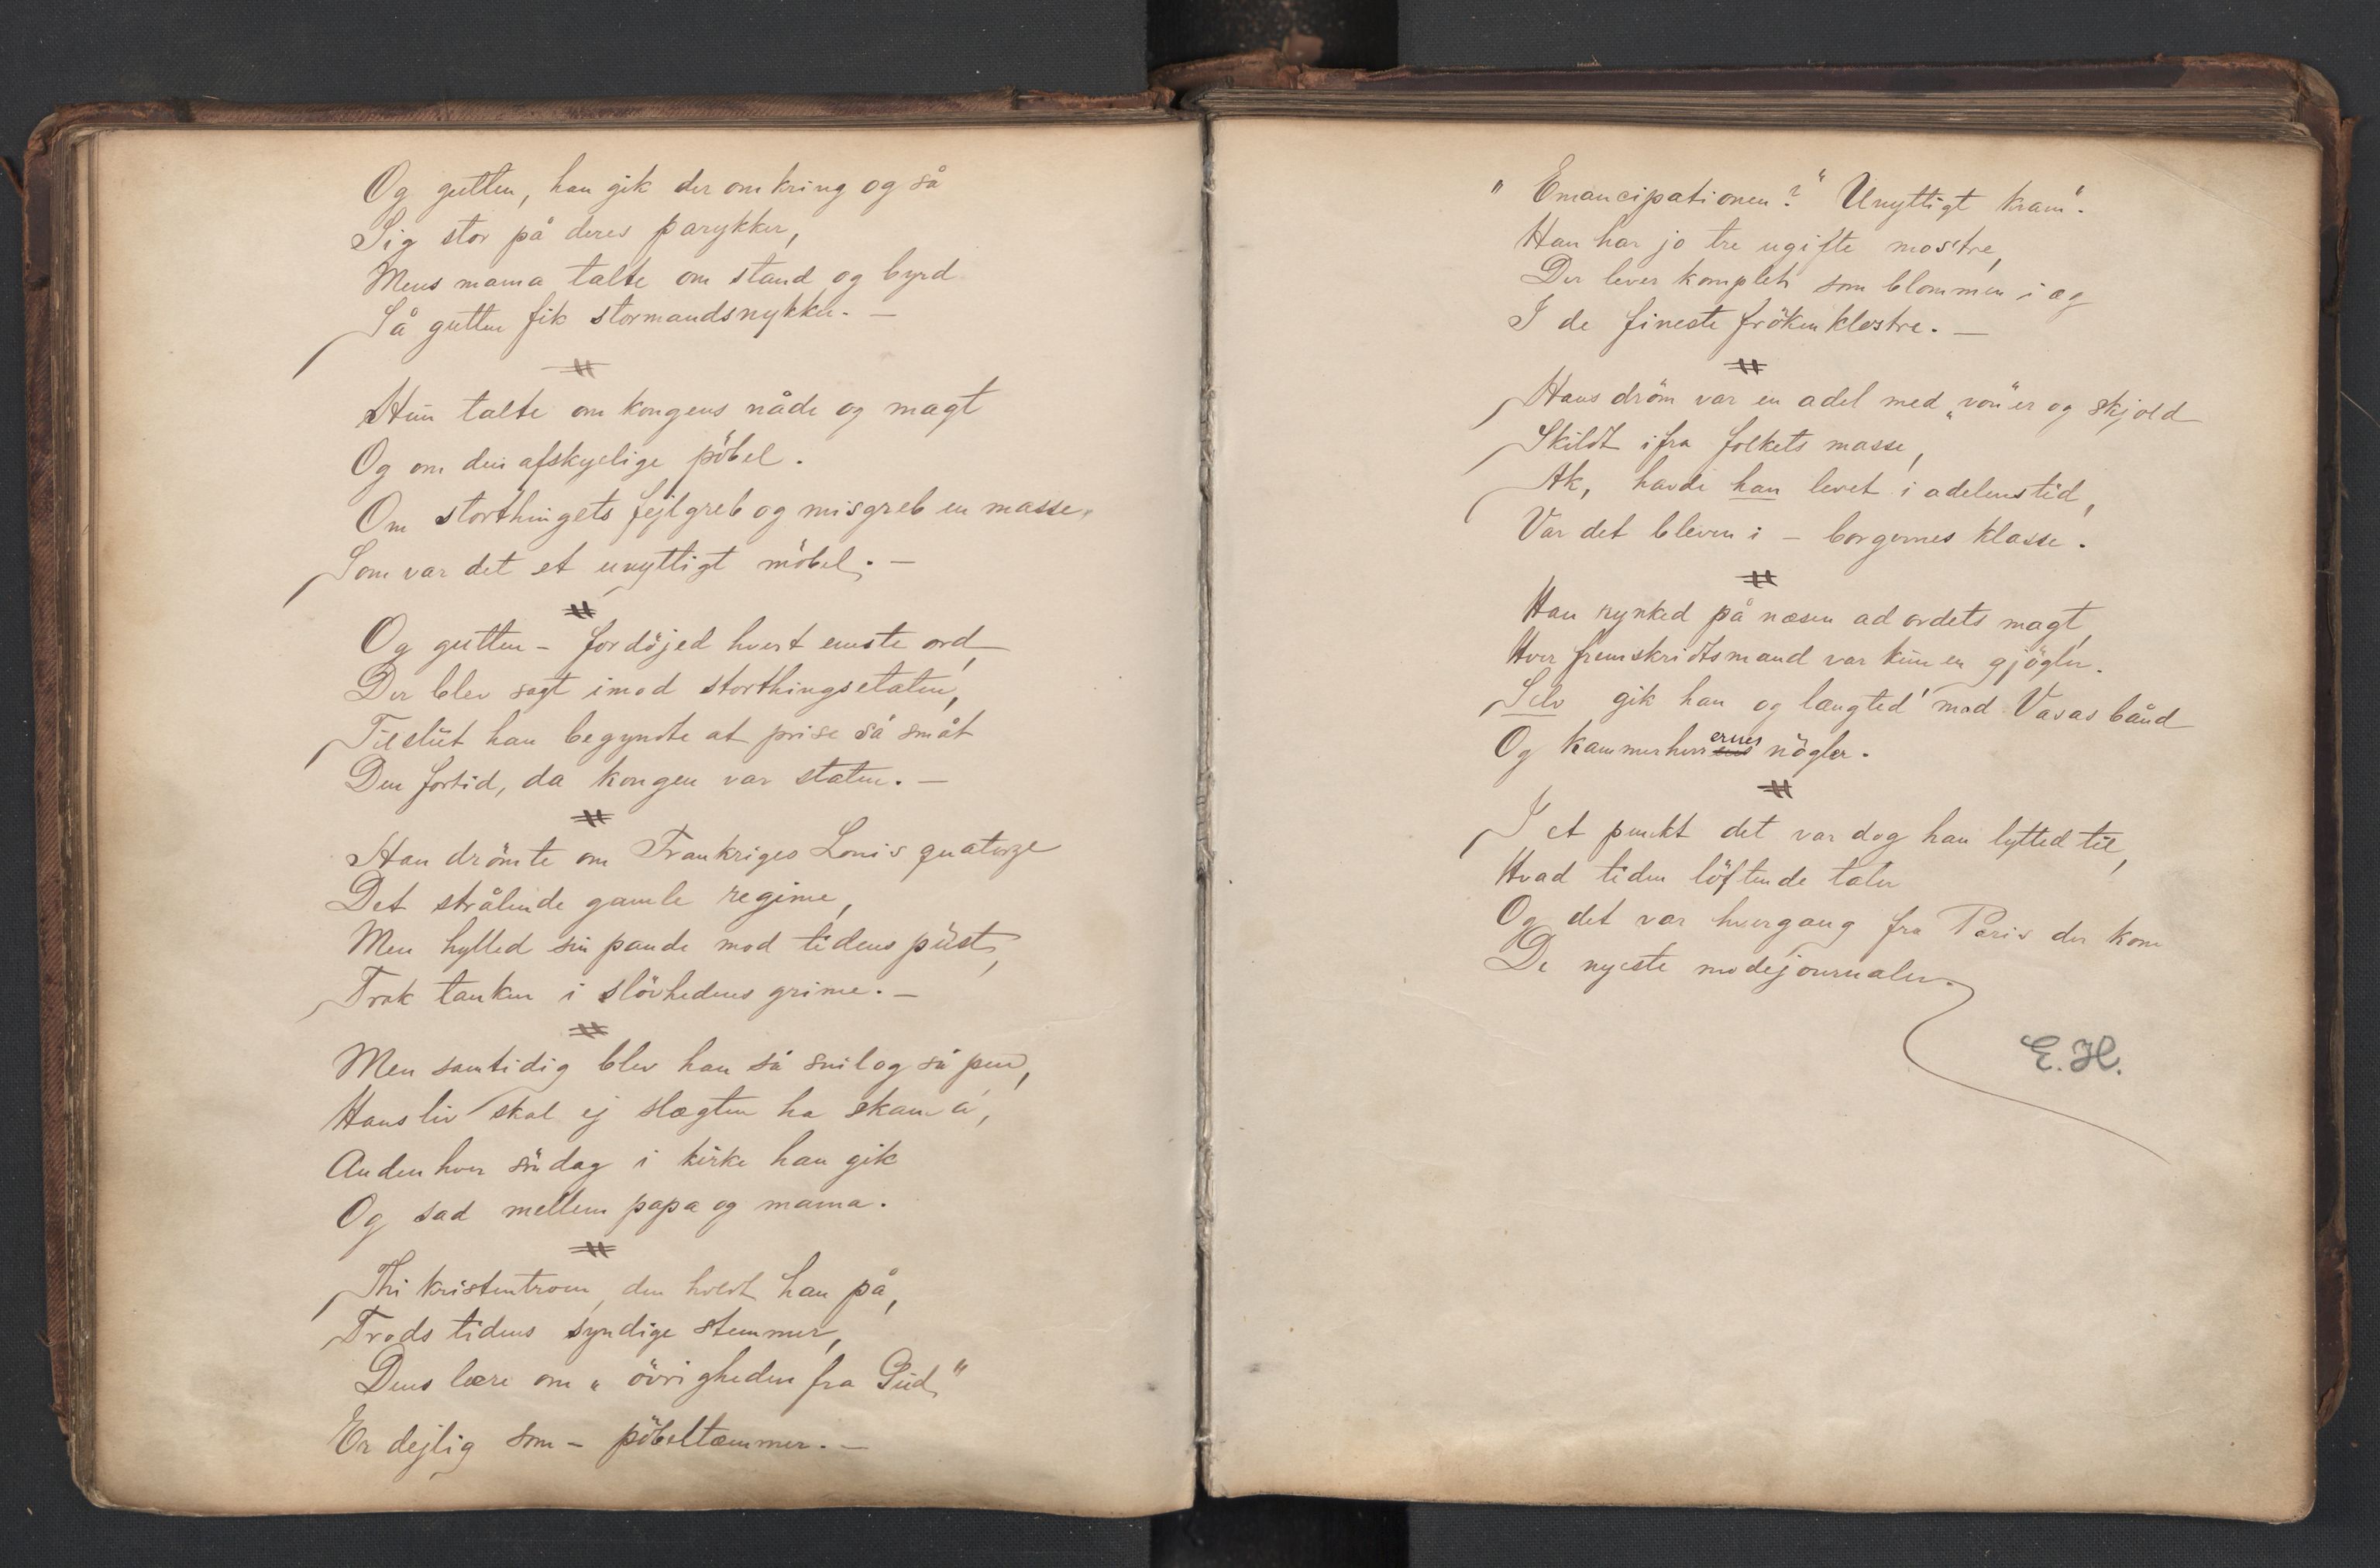 Og gutten, han gik der omkring og så
Sig stor på deres parykker,
Mens mama talte om stand og byrd
Så gutten fik stormandsnykker. —
Hun talte om kongens nåde og magt
Og om den afskyelige pöbel.
Om storthingets fejlgreb og misgreb en masse,
Som var det et unyttigt möbel. —
Og gutten - fordöjed hvert eneste ord,
Der blev sagt imod storthingsetaten,
Tilslut han begyndte at prise så småt
Den fortid, da kongen var staten. —
Han drömte om Frankriges Louis quatorze
Det strålende gamle regime,
Men hylled sin pande mod tidens pust,
Trak tanken i slövhedens grime. —
Men samtidig blev han så snil og så pen,
Hans liv skal ej slægten ha skam a',
Anden hver söndag i kirke han gik
Og sad mellem papa og mama.
Thi kristentroen, den holdt han på,
Trods tidens syndige stemmer,
Dens lære om „övrigheden fra Gud"
Er dejlig som - pöbeltæmmer. —
"Emancipationen?" Unyttigt kram".
Han har jo tre ugifte mostre,
Der lever komplet som blommen i æg
I de fineste frökenklostre. —
Hans dröm var en adel med „von"er og skjold
Skildt ifra folkets masse,
Ak, havde han levet i adelens tid,
Var det bleven i - borgernes klasse.
Han rynked på næsen ad ordets magt,
Hver fremskridtsmand var kun en gjögler.
Selv gik han og længted' mod Vasas bånd
Og kammerherrernes nögler.
I et punkt det var dog han lytted til,
Hvad tiden löftende taler
Og det var hvergang fra Paris der kom
De nyeste modejournaler.
E. H.